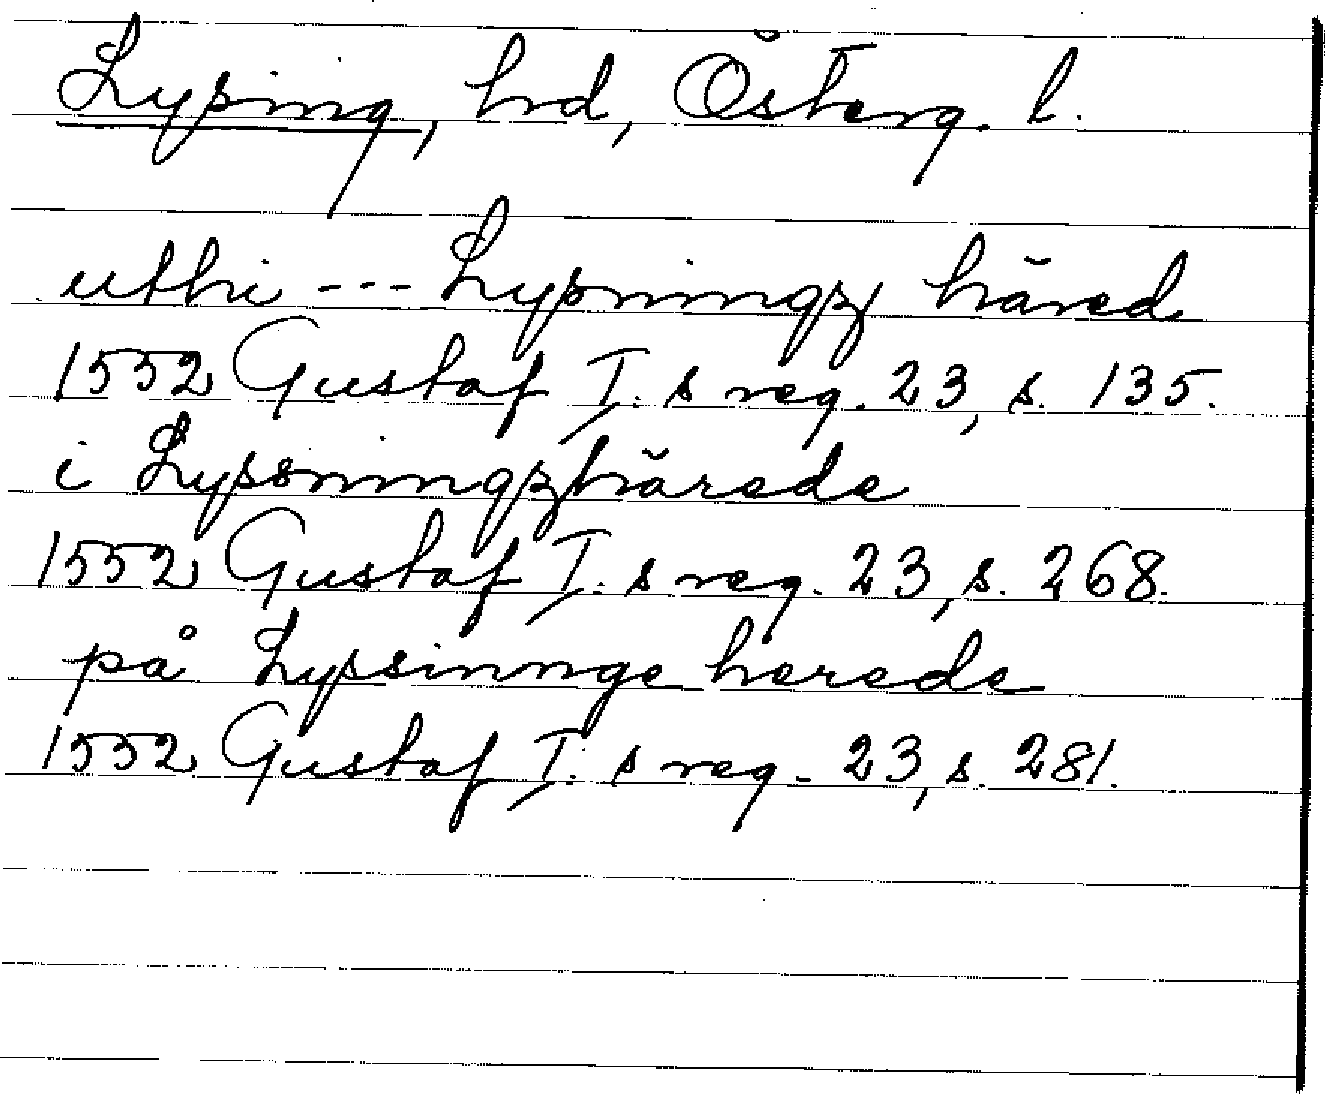 Lysing, hd, Österg. l.
uthi --- Lysningz häred
1552 Gustaf I.s reg. 23, s. 135.
i Lyssningzhärede
1552 Gustaf I.s reg. 23, s. 268.
på Lyssinnge herede
1552 Gustaf I.s reg. 23, s. 281.